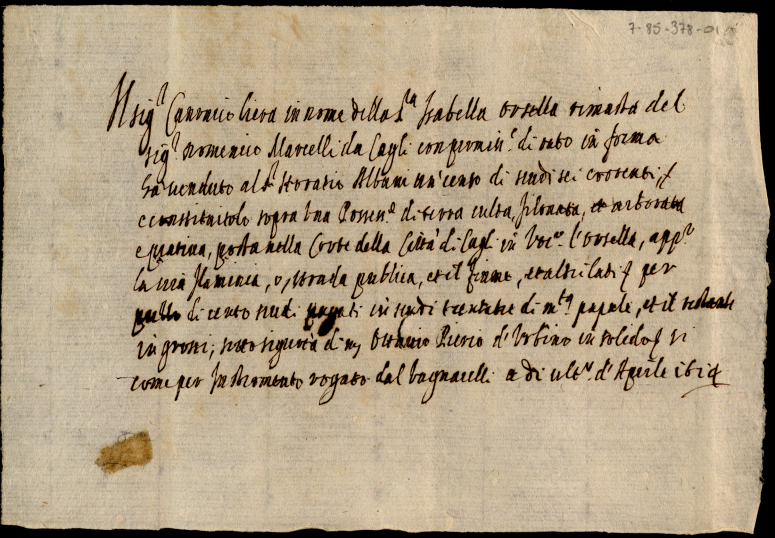 7-85-378-01
Il sig.r Canonico Liera in nome della S.ra Isabella Orsella rimasta del
sig.r Domenico Marcelli da Cagli con promis.e di rato in forma
ha venduto al S.r Horatio Albani un cento di scudi sei correnti,
e constituitolo sopra una Possess.e di terra culta, filonata, et arborata
e prativa, posta nella Corte della Città di Cagli in Voc.o l'Orsella, app.o
la via flaminia, o, strada publica, et il fiume, et altri lati per
di cento scudi pagati in scudi trentatre di m.ta papale, et il restante
in grossi; sotto sigurtà di m Ottavio Pierio d'Urbino in solido si
come per Instromento rogato dal Vagnarelli a di ult.o d'Aprile